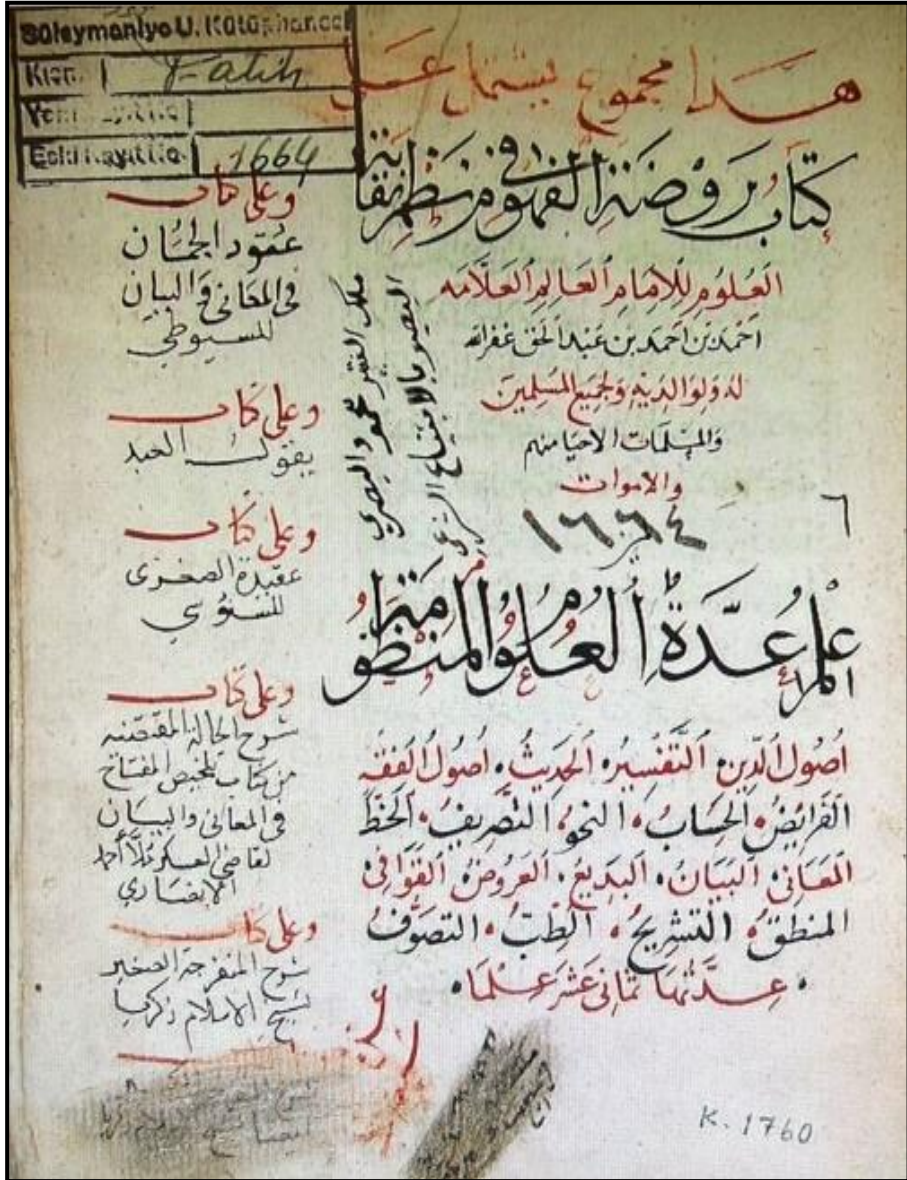 Süleymaniye U. Kütüphanesi
Kısmı Fatih
Yeni Kayıt No.
Eski Kayıt No. 1664
هذا مجموع يشتمل على
كتاب روضة الفهوم في نظم نقاية
العلوم للامام العالم العلامه
احمد بن احمد بن عبد الحق غفر الله
له ولوالديه ولجميع المسلمين
والمسلمات الاحيا منهم
والاموات
١٦٦٤
٦
اعلم عدة العلوم المنظومة
اصول الدين التفسير الحديث اصول الفقه
الفرايض الحساب النحو التصريف الخط
المعاني البيان البديع العروض القوافي
المنطق التشريح الطب التصوف
عدتها ثماني عشر علما
ملك الفقير محمود البصري
بالابتياع الشرعي
وعلى كتاب
عقود الجمان
في المعاني والبيان
للسيوطي
وعلى كتاب
يقول العبد
وعلى كتاب
عقيدة الصغرى
للسنوسي
وعلى كتاب
شرح الجالة المقتضبه
من كتاب تلخيص المفتاح
في المعاني والبيان
لقاضي العسكر ملا احمد
الانصاري
وعلى كتاب
شرح المنفرجة الصغير
لشيخ الاسلام زكريا
K. 1760